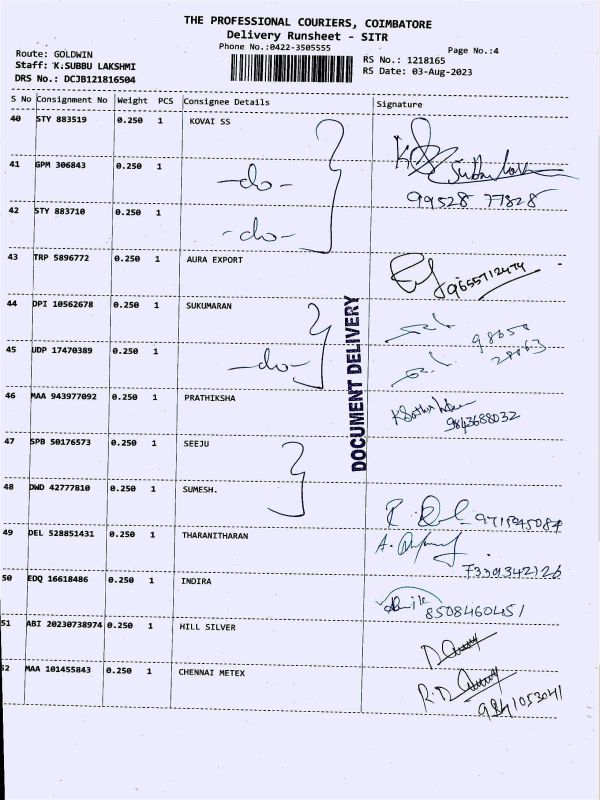 THE PROFESSIONAL COURIERS, COIMBATORE
Delivery Runsheet - SITR
Phone No.:0422-3505555
Page No.:4
Route: GOLDWIN
RS No.: 1218165
Staff: K.SUBBU LAKSHMI
RS Date: 03-Aug-2023
DRS No.: DCJB121816504
S No Consignment No Weight PCS Consignee Details Signature
40 STY 883519 0.250 1 KOVAI SS
41 GPM 306843 0.250 1 -do-
99528 77828
42 STY 883710 0.250 1 -do-
43 TRP 5896772 0.250 1 AURA EXPORT 9655712474
44 DPI 10562678 0.250 1 SUKUMARAN
45 UDP 17470389 0.250 1 -do-
46 MAA 943977092 0.250 1 PRATHIKSHA 9843688032
47 SPB 50176573 0.250 1 SEEJU
48 DWD 42777810 0.250 1 SUMESH.
49 DEL 528851431 0.250 1 THARANITHARAN
7339342126
50 EDQ 16618486 0.250 1 INDIRA 8508460451
51 ABI 20230738974 0.250 1 HILL SILVER
52 MAA 101455843 0.250 1 CHENNAI METEX
9841053041
DOCUMENT DELIVERY